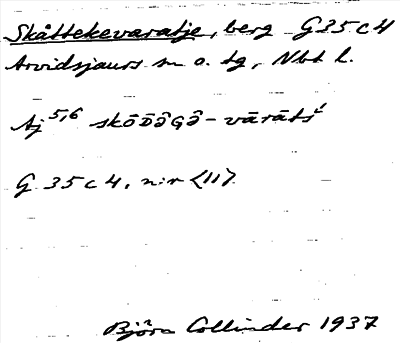 Skåttekevaratje, berg G35c4
Arvidsjaurs sn o. tg, Nbt l.
Aj 5,6 skōDə̂Gə̂-vārāts´
G 35c4, n:r <11>
Björn Collinder 1937